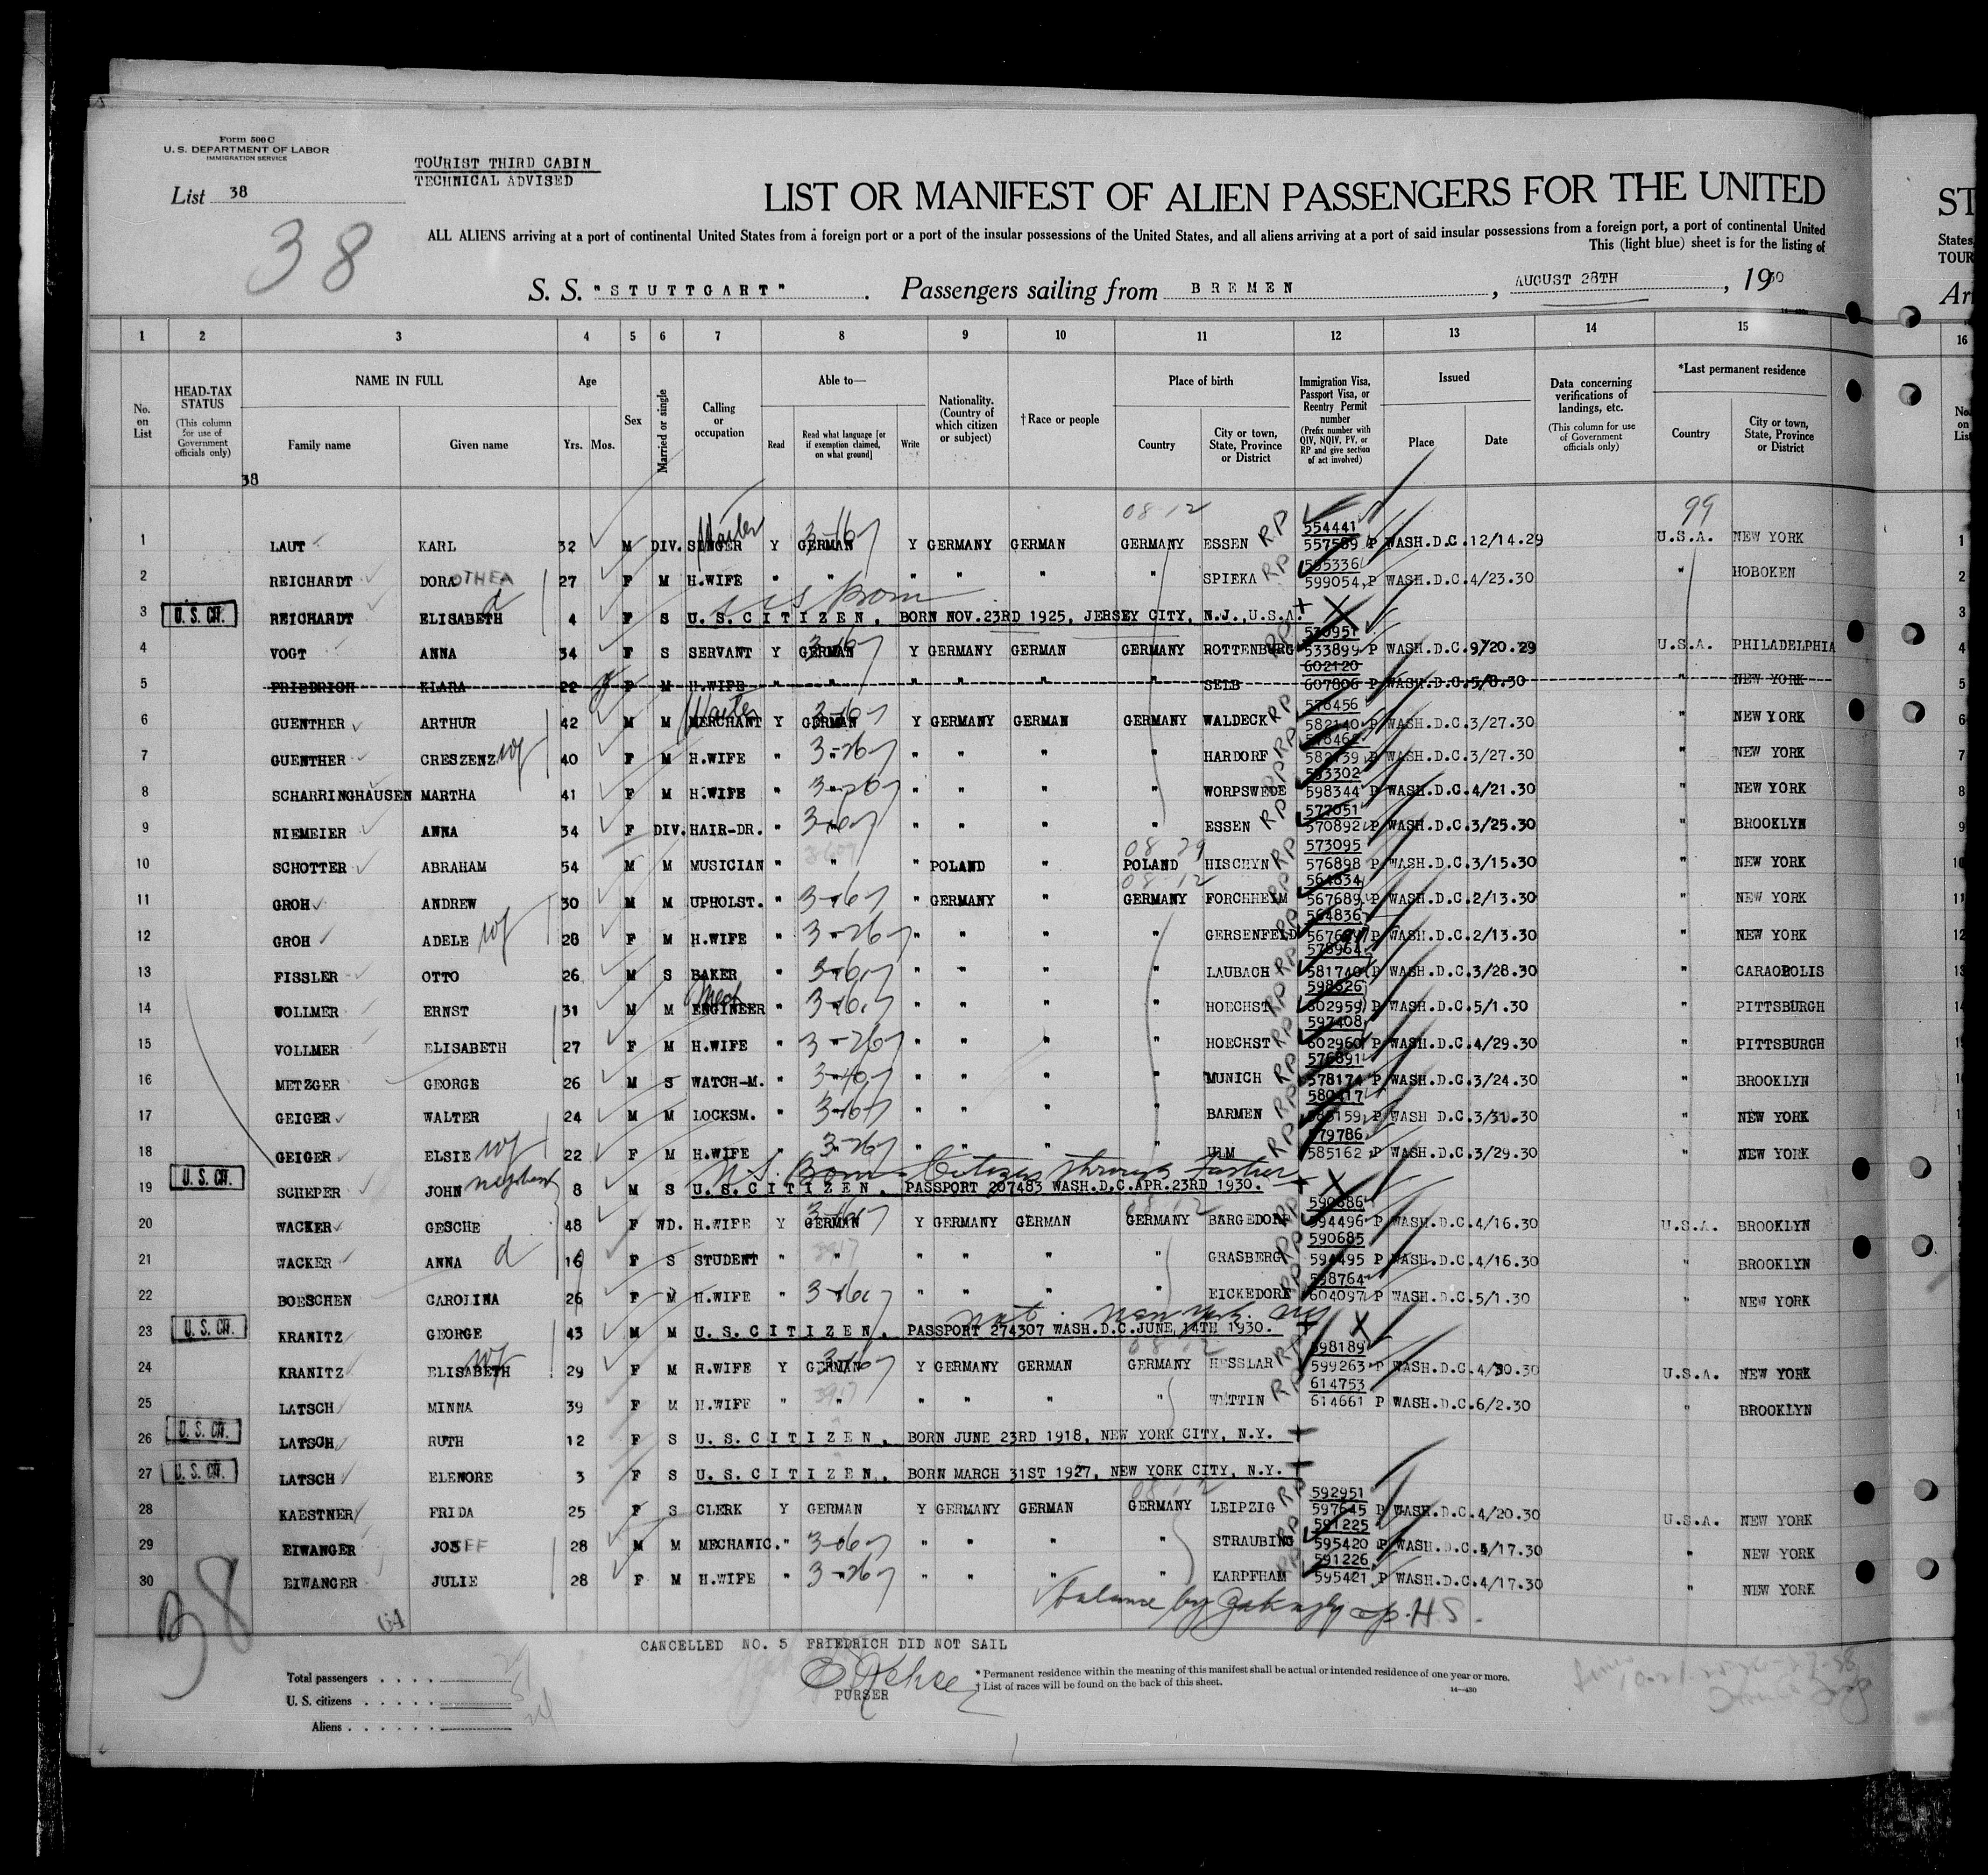 Form 500 C
U. S. DEPARTMENT OF LABOR
IMMIGRATION SERVICE
TOURIST THIRD CABIN
TECHNICAL ADVISED
List 38
38
LIST OR MANIFEST OF ALIEN PASSENGERS FOR THE UNITED
ST
ALL ALIENS arriving at a port of continental United States from a foreign port or a port of the insular possessions of the United States, and all aliens arriving at a port of said insular possessions from a foreign port, a port of continental United
States
This (light blue) sheet is for the listing of
TOUR
S. S. "STUTTGART". Passengers sailing from BREMEN, AUGUST 28TH, 1930
Ar
1 2 3 4 5 6 7 8 9 10 11 12 13 14 15 16
No. on List
HEAD-TAX STATUS (This column for use of Government officials only)
NAME IN FULL
Family name Given name
Age
Yrs. Mos.
Sex
Married or single
Calling or occupation
Able to—
Read Read what language [or if exemption claimed, on what ground] Write
Nationality. (Country of which citizen or subject)
†Race or people
Place of birth
Country City or town, State, Province or District
Immigration Visa, Passport Visa, or Reentry Permit number (Prefix number with QIV, NQIV, PV, or RP and give section of act involved)
Issued
Place Date
Data concerning verifications of landings, etc. (This column for use of Government officials only)
*Last permanent residence
Country City or town, State, Province or District
No. on List
38
08-12 99
1 LAUT KARL 32 M DIV. SINGER Waiter Y GERMAN Y GERMANY GERMAN GERMANY ESSEN RP 554441 557589 P WASH.D.C. 12/14.29 U.S.A. NEW YORK
2 REICHARDT DORAOTHEA 27 F M H.WIFE " " " " " " SPIEKA RP 595336 599054 P WASH.D.C. 4/23.30 " HOBOKEN
3 U.S. CIT. REICHARDT ELISABETH d 4 F S U.S.CITIZEN, BORN NOV.23RD 1925, JERSEY CITY, N.J.,U.S.A. US Born
4 VOGT ANNA 34 F S SERVANT Y GERMAN Y GERMANY GERMAN GERMANY ROTTENBURG RP 530951 533899 P WASH.D.C. 9/20.29 U.S.A. PHILADELPHIA
5 FRIEDRICH KLARA 22 F M H.WIFE " " " " " " SELB 602120 607806 P WASH.D.C. 5/8.30 " NEW YORK
6 GUENTHER ARTHUR 42 M M MERCHANT Waiter Y GERMAN Y GERMANY GERMAN GERMANY WALDECK RP 578456 582140 P WASH.D.C. 3/27.30 " NEW YORK
7 GUENTHER CRESZENZ wf 40 F M H.WIFE " " " " " " HARDORF RP P WASH.D.C. 3/27.30 " NEW YORK
8 SCHARRINGHAUSEN MARTHA 41 F M H.WIFE " " " " " " WORPSWEDE RP 593302 598344 P WASH.D.C. 4/21.30 " NEW YORK
9 NIEMEIER ANNA 34 F DIV. HAIR-DR. " " " " " " ESSEN RP 577051 570892 P WASH.D.C. 3/25.30 " BROOKLYN
08 29
10 SCHOTTER ABRAHAM 54 M M MUSICIAN " " " POLAND " POLAND HISCHYN RP 573095 576898 P WASH.D.C. 3/15.30 " NEW YORK
08 12
11 GROH ANDREW 30 M M UPHOLST. " " " GERMANY " GERMANY FORCHHEIM RP 564834 567689 P WASH.D.C. 2/13.30 " NEW YORK
12 GROH ADELE wf 28 F M H.WIFE " " " " " " GERSENFELD RP 564836 P WASH.D.C. 2/13.30 " NEW YORK
13 FISSLER OTTO 26 M S BAKER " " " " " " LAUBACH RP 578964 581740 P WASH.D.C. 3/28.30 " CARAOPOLIS
14 VOLLMER ERNST 31 M M ENGINEER Mech " " " " " " HOECHST RP 598626 602959 P WASH.D.C. 5/1.30 " PITTSBURGH
15 VOLLMER ELISABETH 27 F M H.WIFE " " " " " " HOECHST RP 597408 602960 P WASH.D.C. 4/29.30 " PITTSBURGH
16 METZGER GEORGE 26 M S WATCH-M. " " " " " " MUNICH RP 576891 578174 P WASH.D.C. 3/24.30 " BROOKLYN
17 GEIGER WALTER 24 M M LOCKSM. " " " " " " BARMEN RP 580417 P WASH D.C. 3/31.30 " NEW YORK
18 GEIGER ELSIE wf 22 F M H.WIFE " " " " " " ULM RP 579786 585162 P WASH.D.C. 3/29.30 " NEW YORK
U.S. Born Citizen through Father
19 U.S. CIT. SCHEPER JOHN nephew 8 M S U.S.CITIZEN, PASSPORT 207483 WASH.D.C.APR.23RD 1930.
20 WACKER GESCHE 48 F WD. H.WIFE Y GERMAN Y GERMANY GERMAN GERMANY BARGEDORF RP 590686 594496 P WASH.D.C. 4/16.30 U.S.A. BROOKLYN
21 WACKER ANNA d 16 F S STUDENT " " " " " " GRASBERG RP 590685 594495 P WASH.D.C. 4/16.30 " BROOKLYN
22 BOESCHEN CAROLINA 26 F M H.WIFE " " " " " " EICKEDORF RP 598764 604097 P WASH.D.C. 5/1.30 " NEW YORK
nat. New York NY
23 U.S. CIT. KRANITZ GEORGE 43 M M U.S.CITIZEN, PASSPORT 274307 WASH.D.C.JUNE 14TH 1930.
24 KRANITZ ELISABETH wf 29 F M H.WIFE Y GERMAN Y GERMANY GERMAN GERMANY HESSLAR RP 598189 599263 P WASH.D.C. 4/30.30 U.S.A. NEW YORK
25 LATSCH MINNA 39 F M H.WIFE " " " " " " WETTIN RP 614753 614661 P WASH.D.C. 6/2.30 " BROOKLYN
26 U.S. CIT. LATSCH RUTH 12 F S U.S.CITIZEN, BORN JUNE 23RD 1918, NEW YORK CITY, N.Y.
27 U.S. CIT. LATSCH ELENORE 3 F S U.S.CITIZEN, BORN MARCH 31ST 1927, NEW YORK CITY, N.Y.
28 KAESTNER FRIDA 25 F S CLERK Y GERMAN Y GERMANY GERMAN GERMANY LEIPZIG RP 592951 597645 P WASH.D.C. 4/20.30 U.S.A. NEW YORK
29 EIWANGER JOSEF 28 M M MECHANIC. " " " " " " STRAUBING RP 591225 595420 P WASH.D.C. 4/17.30 " NEW YORK
30 EIWANGER JULIE 28 F M H.WIFE " " " " " " KARPFHAM RP 591226 595421 P WASH.D.C. 4/17.30 " NEW YORK
38
64
balance by H.S.
CANCELLED NO. 5 FRIEDRICH DID NOT SAIL
PURSER
Total passengers
U. S. citizens
Aliens
* Permanent residence within the meaning of this manifest shall be actual or intended residence of one year or more.
† List of races will be found on the back of this sheet.
14—430